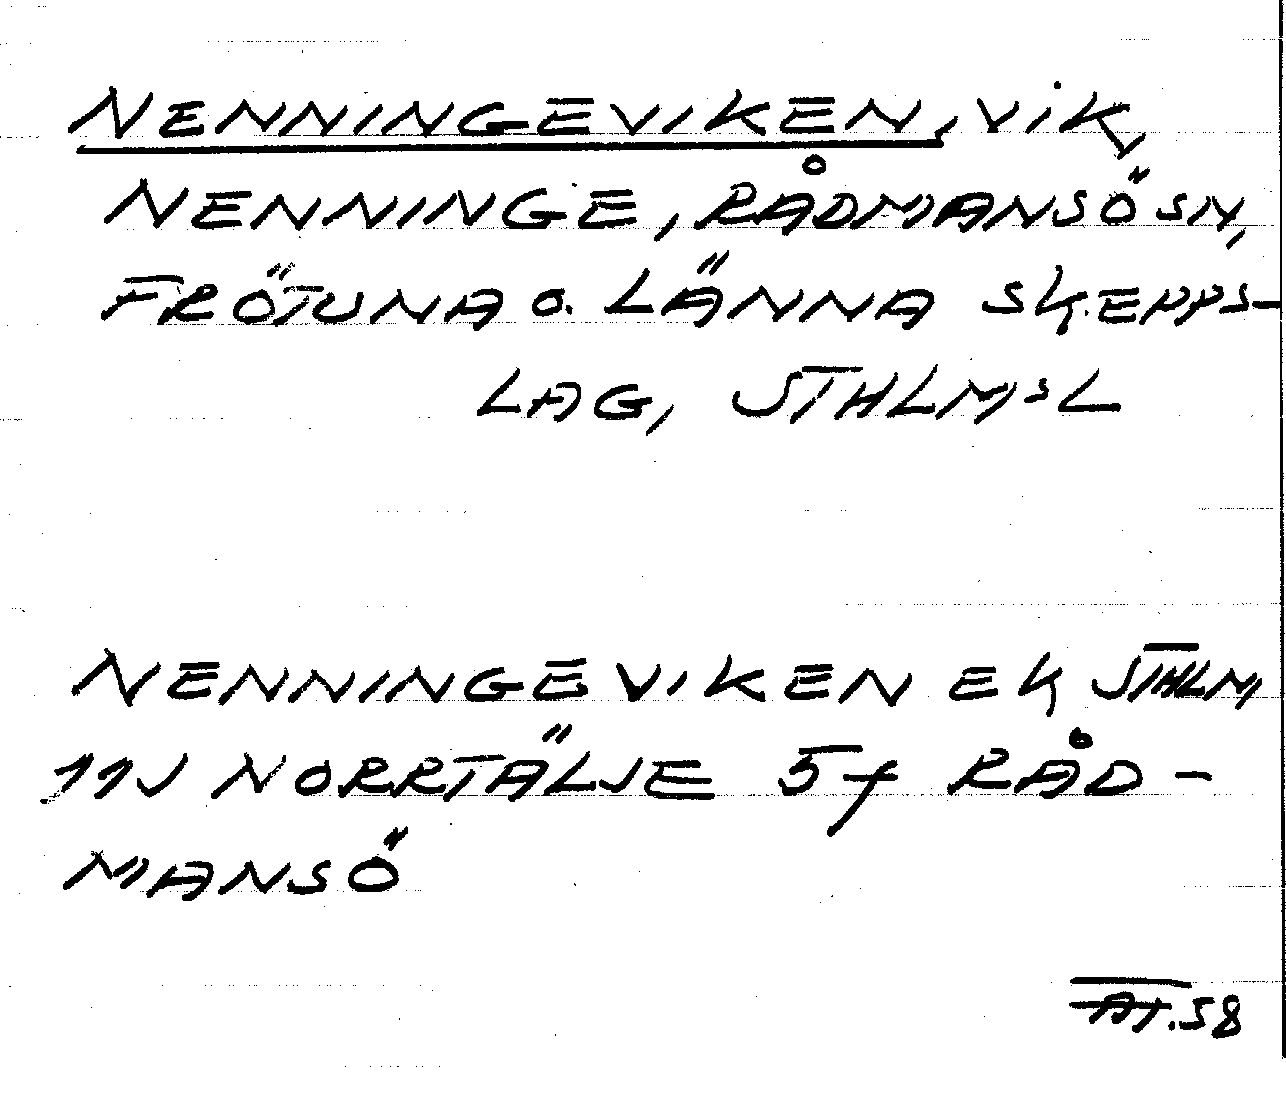 NENNINGEVIKEN, VIK,
NENNINGE, RÅDMANSÖ SN,
FRÖTUNA O. LÄNNA SKEPPS-
LAG, STHLMS L
NENNINGEVIKEN EK STHLM
11J NORRTÄLJE 5f RÅD-
MANSÖ
58